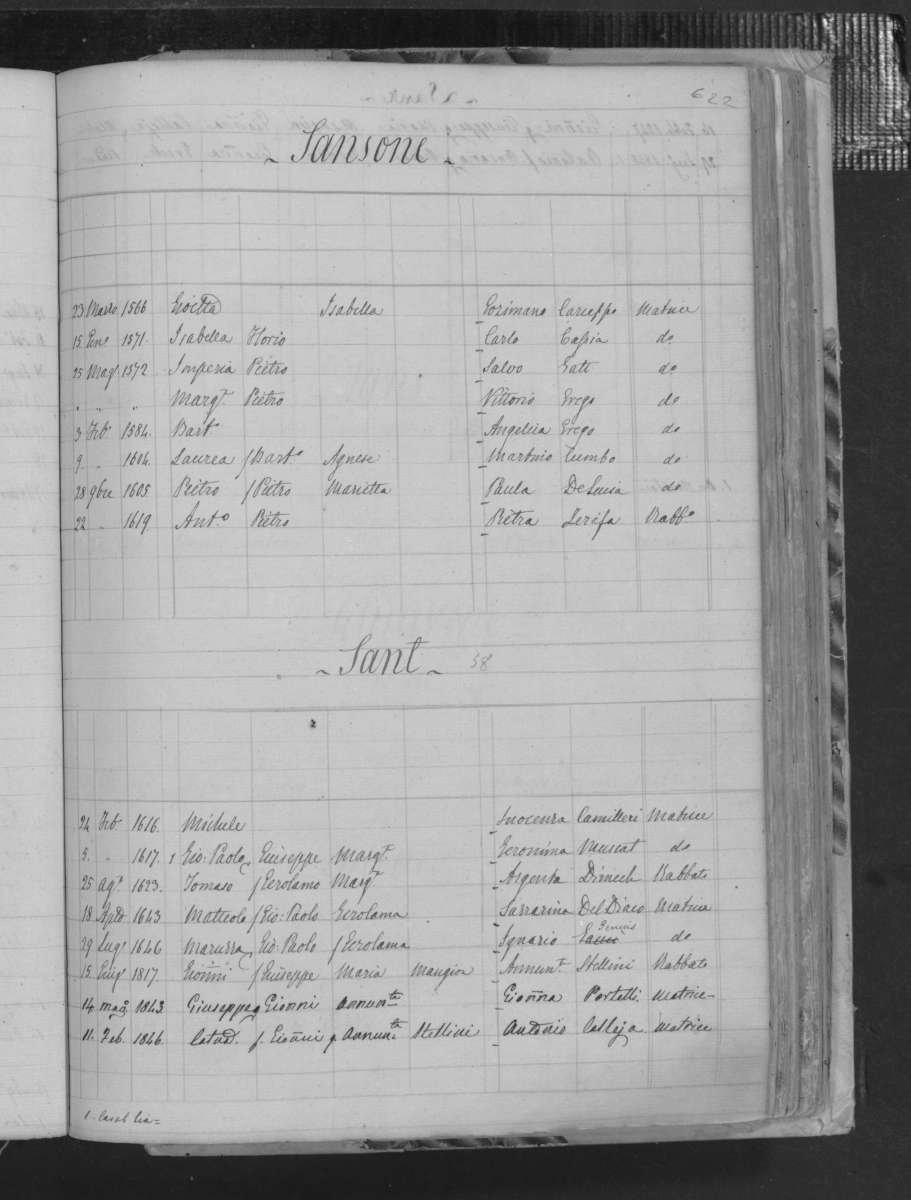 622
- Sansone -
23 Marzo 1566 Isabella Cosimano Caruppo Matrice
15 1571. Isabella Florio Carlo Cassia do
25 Mag. 1572 Imperia Pietro Salvo Gatt do
" " " Margta. Pietro Vittorio Grego do
3 Feb. 1584. Barta. Angelica Grego do
9 " 1604. Laurea f Barto. Agnese Martino Zumbo do
28 9bre 1605 Pietro f Pietro Marietta Paula De Lucia do
22 " 1619 Anto. Pietro Pietra Rabbo.
- Sant - 38
24 Feb. 1616. Michele Inocenza Camilleri Matrice
5. " 1617. 1 Gio: Paolo, Giuseppe Margta. Geronima Muscat do
25 Ago. 1623. Tomaso f Gerolamo Margta. Argenta Dimech Rabbato
18 1643 Matteolo f Gio: Paolo Gerolama Sassarina Del Diaco Matrice
29 Lug. 1646 Maruzza, Gio: Paolo f Gerolama Ignazio do
15 1817. Gioñni f Giuseppe Maria Mangion Annunta. Stellini Rabbato
14 mag. 1843 Giuseppe q Gionni Annunta Gioñna Portelli Matrice
11. Feb. 1846. Catna. f. Gioñni q Annunta Stellini Antonio Calleja Matrice
1 - Casal Lia =